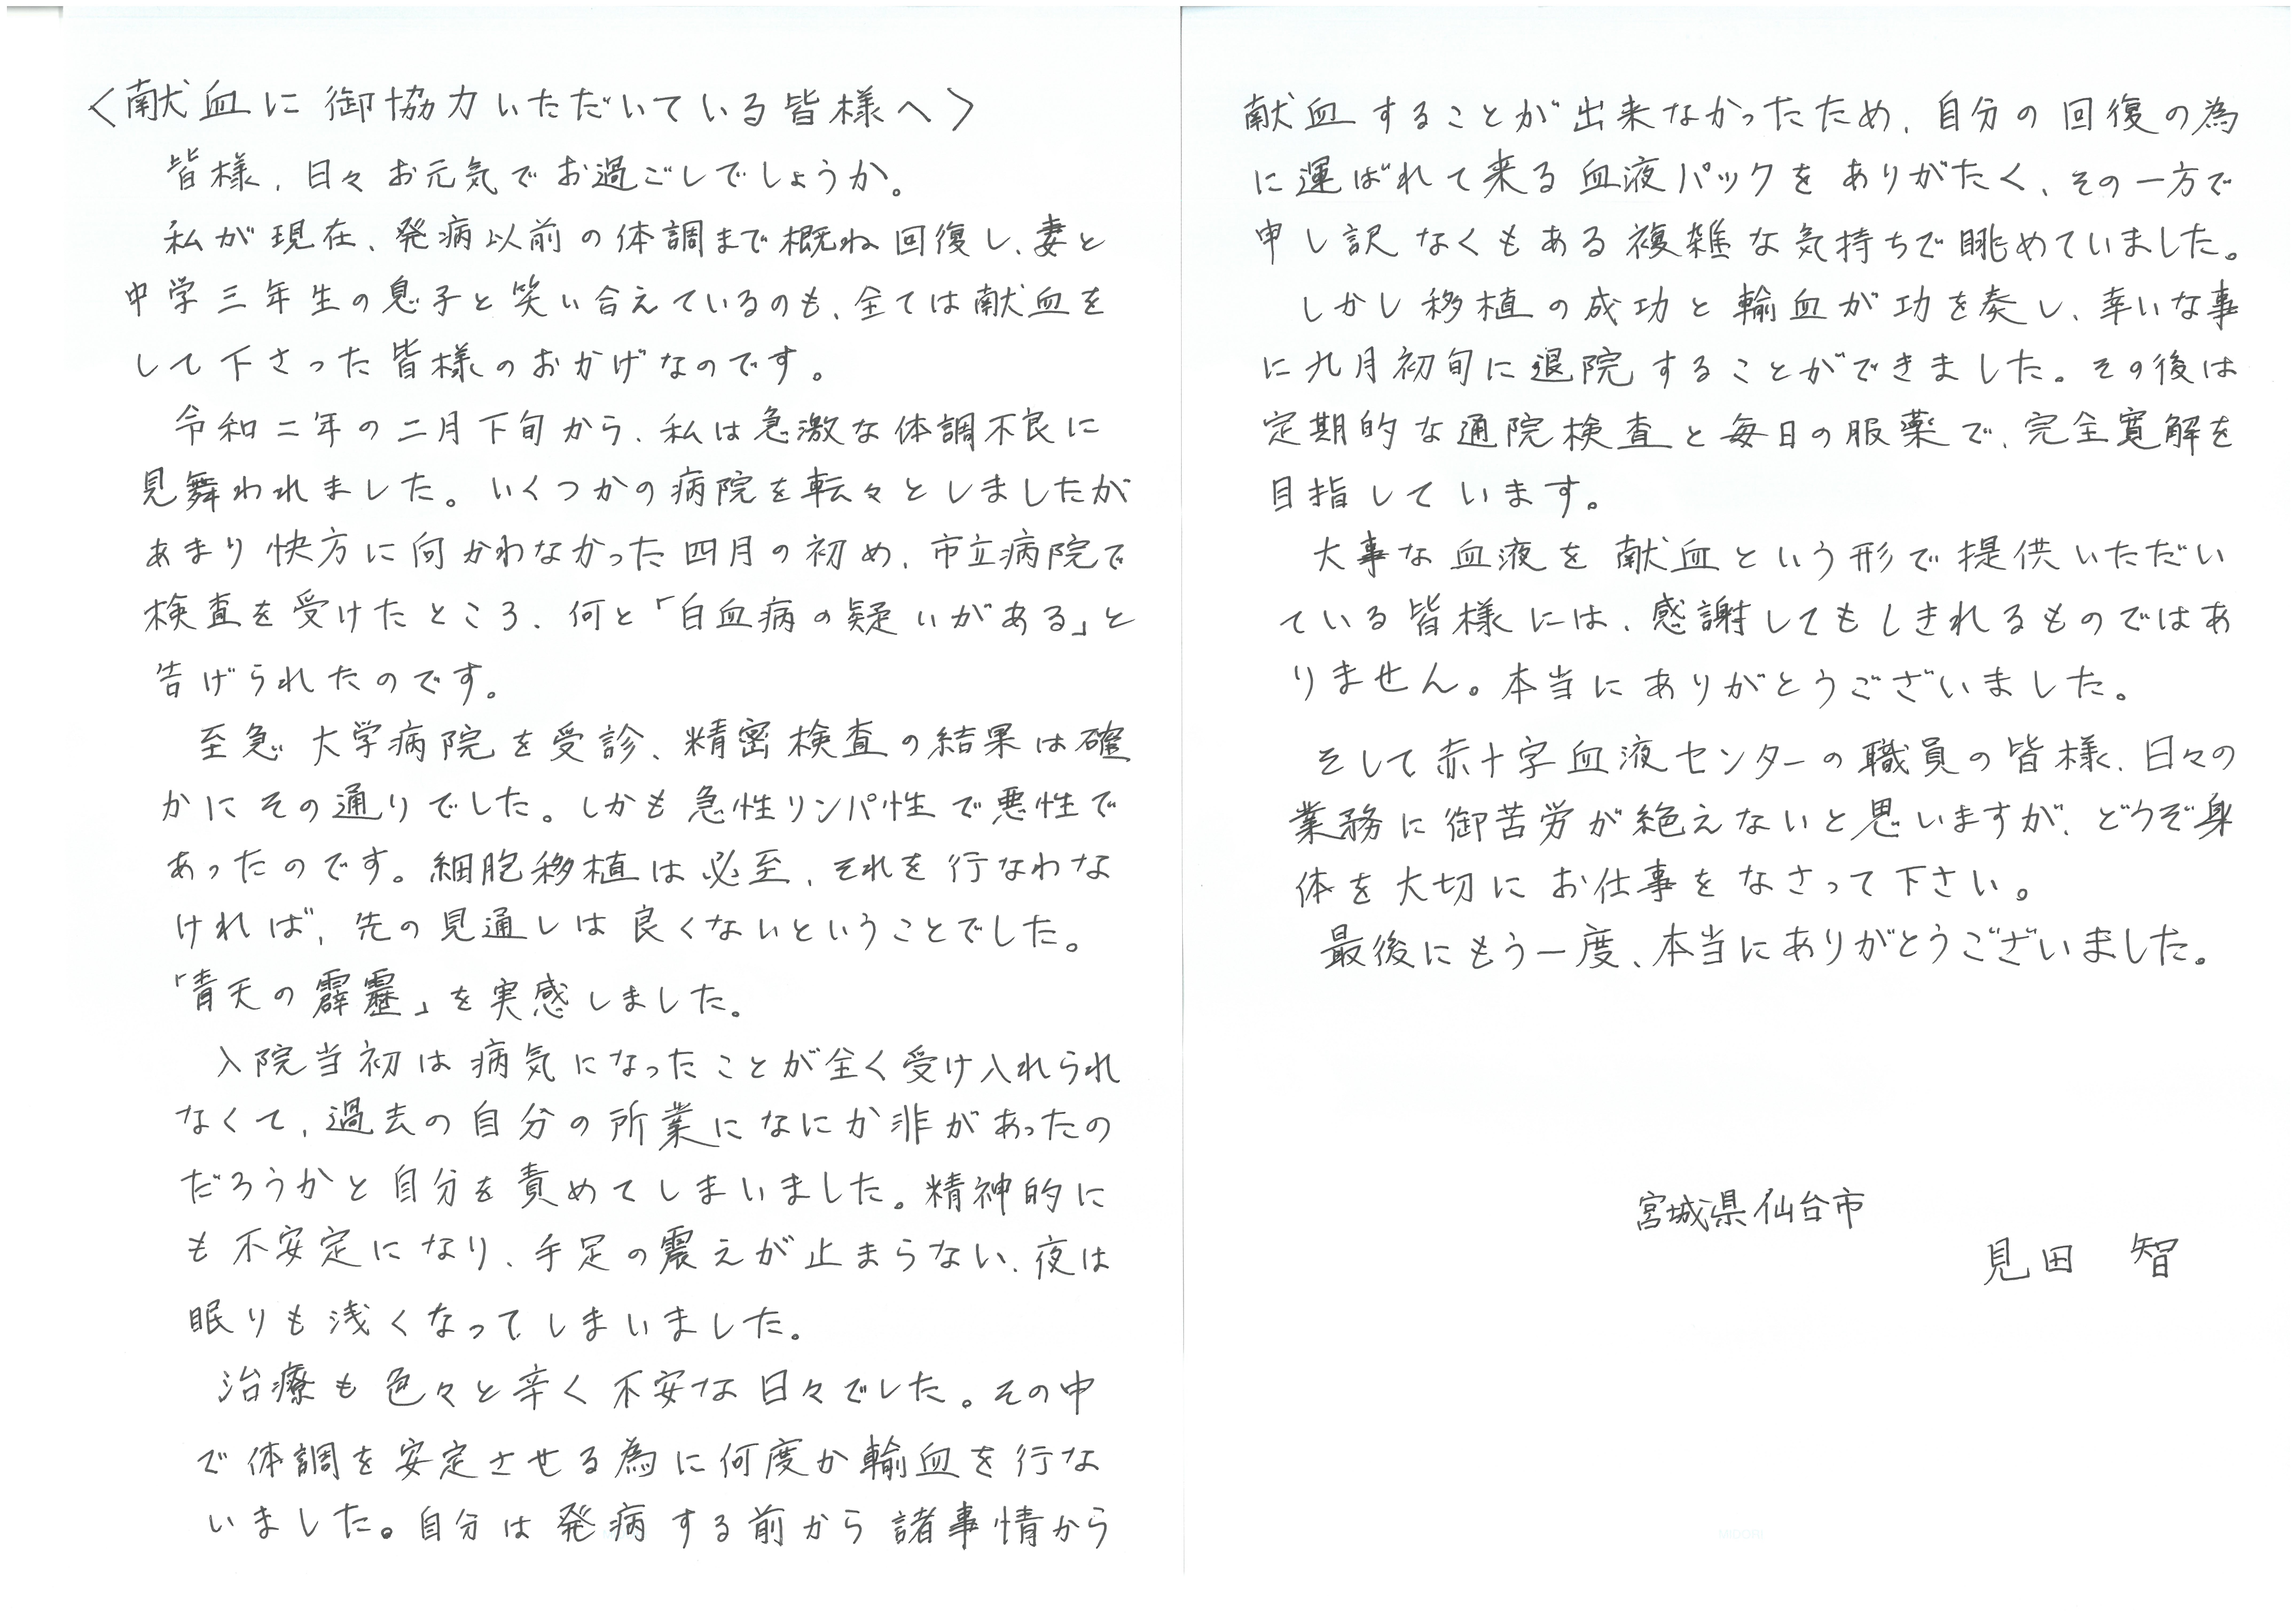 〈献血に御協力いただいている皆様へ〉
皆様、日々お元気でお過ごしでしょうか。
私が現在、発病以前の体調まで概ね回復し、妻と
中学三年生の息子と笑い合えているのも、全ては献血を
して下さった皆様のおかげなのです。
令和二年の二月下旬から、私は急激な体調不良に
見舞われました。いくつかの病院を転々としましたが
あまり快方に向かわなかった四月の初め、市立病院で
検査を受けたところ、何と「白血病の疑いがある」と
告げられたのです。
至急大学病院を受診、精密検査の結果は確
かにその通りでした。しかも急性リンパ性で悪性で
あったのです。細胞移植は必至、それを行なわな
ければ、先の見通しは良くないということでした。
「青天の霹靂」を実感しました。
入院当初は病気になったことが全く受け入れられ
なくて、過去の自分の所業になにか非があったの
だろうかと自分を責めてしまいました。精神的に
も不安定になり、手足の震えが止まらない、夜は
眠りも浅くなってしまいました。
治療も色々と辛く不安な日々でした。その中
で体調を安定させる為に何度か輸血を行な
いました。自分は発病する前から諸事情から
献血することが出来なかったため、自分の回復の為
に運ばれて来る血液パックをありがたく、その一方で
申し訳なくもある複雑な気持ちで眺めていました。
しかし移植の成功と輸血が功を奏し、幸いな事
に九月初旬に退院することができました。その後は
定期的な通院検査と毎日の服薬で、完全寛解を
目指しています。
大事な血液を献血という形で提供いただい
ている皆様には、感謝してもしきれるものではあ
りません。本当にありがとうございました。
そして赤十字血液センターの職員の皆様、日々の
業務に御苦労が絶えないと思いますが、どうぞ身
体を大切にお仕事をなさって下さい。
最後にもう一度、本当にありがとうございました。
宮城県仙台市
見田 智